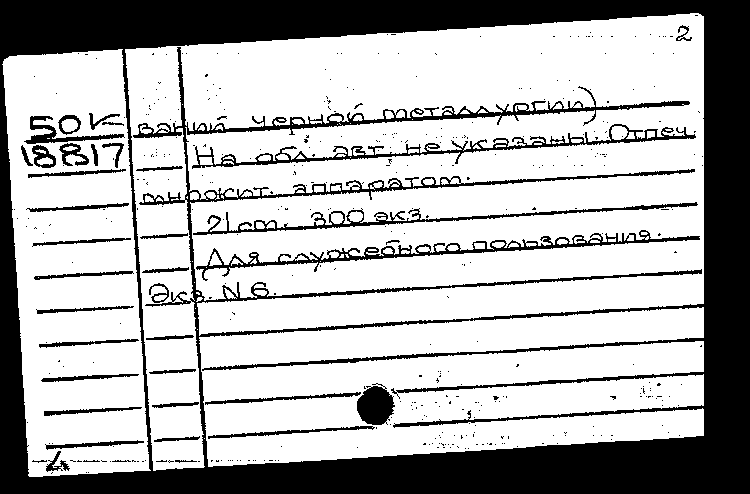 2
50К ваний черной металлургии).
18817 На обл. авт. не указаны. Отпеч.
множит. аппаратом.
21 ст. 300 экз.
Для служебного пользования.
Экз. N 6.